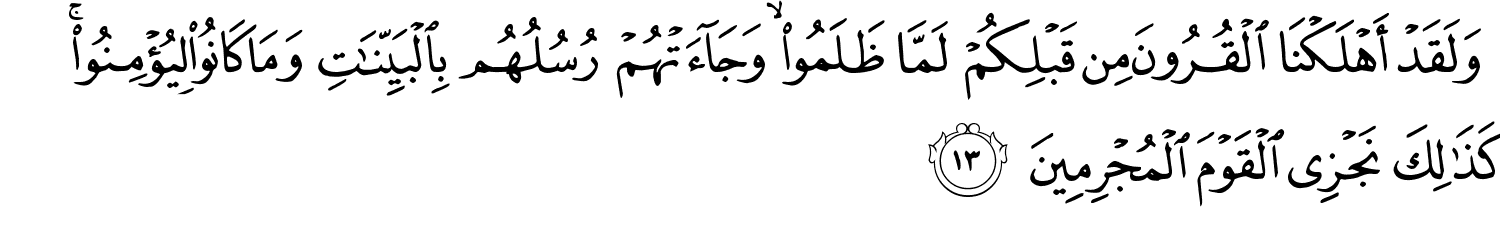 وَلَقَدْ أَهْلَكْنَا ٱلْقُرُونَ مِن قَبْلِكُمْ لَمَّا ظَلَمُوا۟ ۙ وَجَآءَتْهُمْ رُسُلُهُم بِٱلْبَيِّنَـٰتِ وَمَا كَانُوا۟ لِيُؤْمِنُوا۟ ۚ
كَذَٰلِكَ نَجْزِى ٱلْقَوْمَ ٱلْمُجْرِمِينَ ١٣